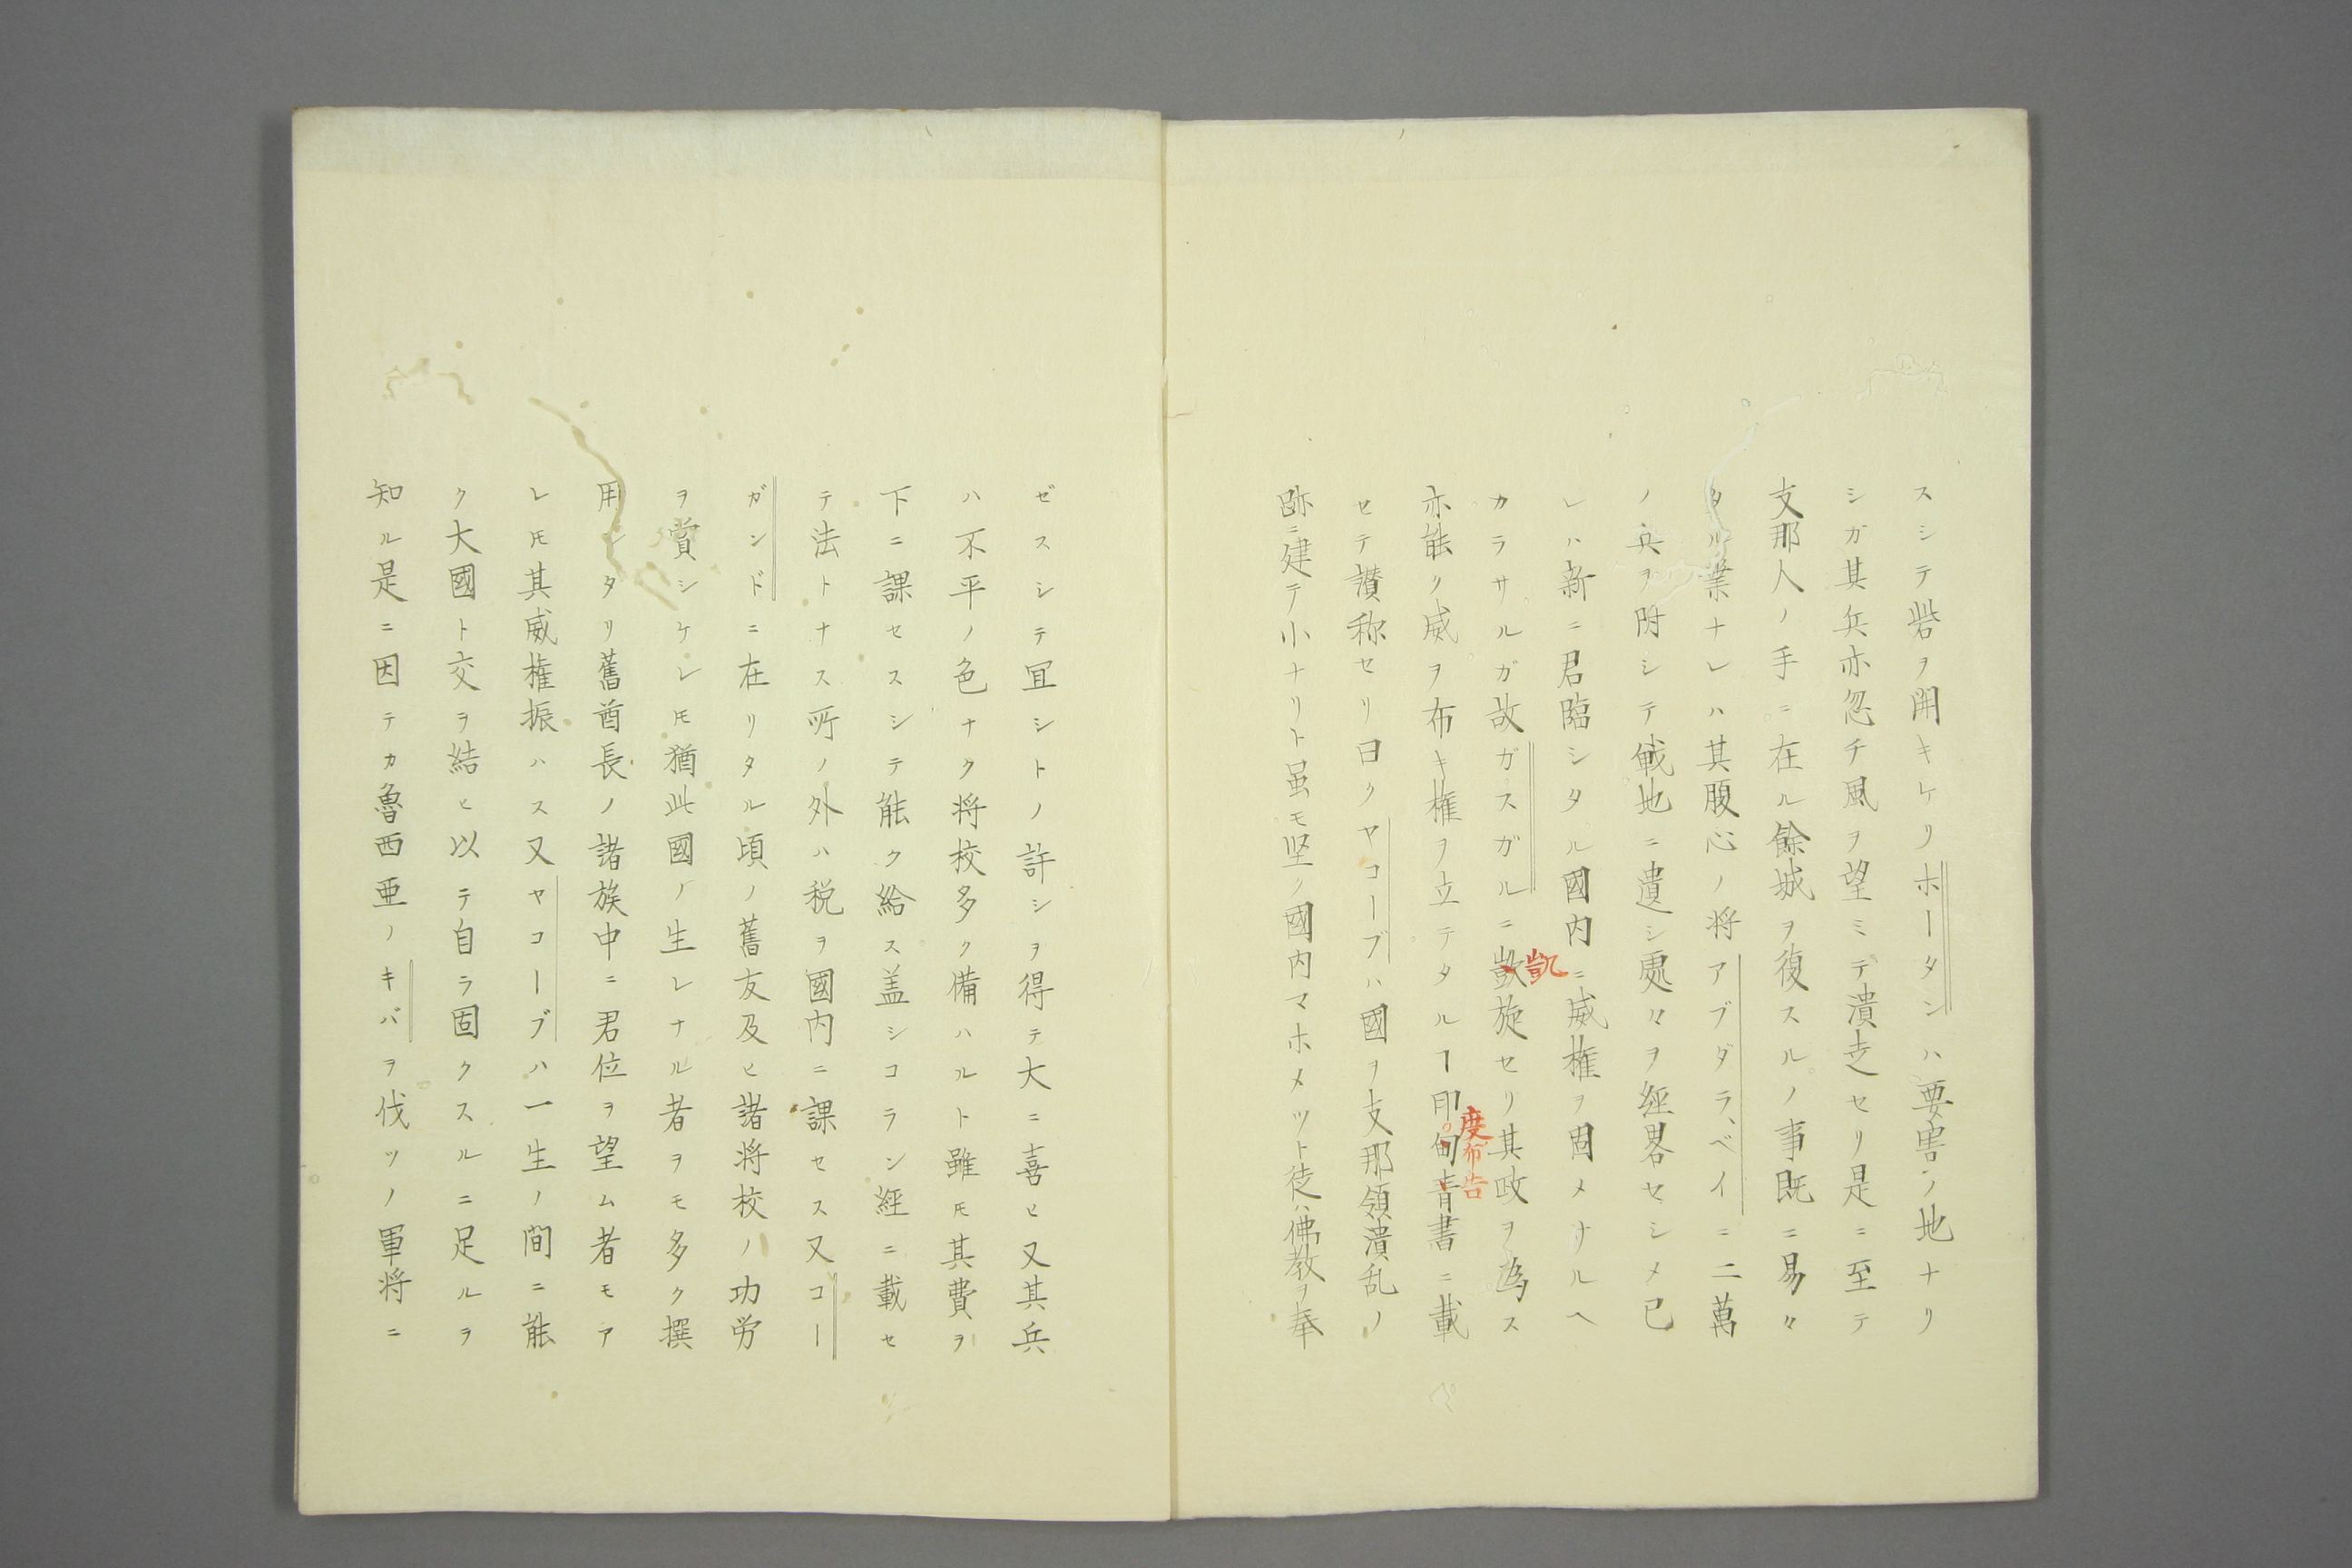 スシテ砦ヲ開キケリホータンハ要害ノ地ナリ
シガ其兵亦忽チ風ヲ望ミテ潰走セリ是ニ至テ
支那人ノ手ニ在ル餘城ヲ復スルノ事既ニ易々
タル業ナレハ其腹心ノ将アブダラ、ベイニ二萬
ノ兵ヲ附シテ戦地ニ遺シ處々ヲ經畧セシメ已
レハ新ニ君臨シタル國内ニ威権ヲ固メサルヘ
カラサルガ故ガスガルニ歖旋セリ其政ヲ為ス
凱
亦能ク威ヲ布キ権ヲ立テタルヿ印甸青書ニ載
度布告
セテ讃称セリ曰クヤコーブハ國ヲ支那領潰乱ノ
跡ニ建テ小ナリト虽モ坚ク國内マホメット徒ハ佛教ヲ奉
ゼスシテ冝シトノ許シヲ得テ大ニ喜ヒ又其兵
ハ不平ノ色ナク将校多ク備ハルト雖𪜈其費ヲ
下ニ課セスシテ能ク給ス盖シコラン経ニ載セ
テ法トナス所ノ外ハ税ヲ國内ニ課セス又コー
ガンドニ在リタル頃ノ舊友及ヒ諸将校ノ功労
ヲ賞シケレ𪜈猶此國ノ生レナル者ヲモ多ク撰
用シタリ舊酋長ノ諸族中ニ君位ヲ望ム者モア
レ𪜈其威権振ハス又ヤコーブハ一生ノ間ニ能
ク大國ト交ヲ結ヒ以テ自ラ固クスルニ足ルヲ
知ル是ニ因テカ魯西亜ノキバヲ伐ツノ軍将ニ